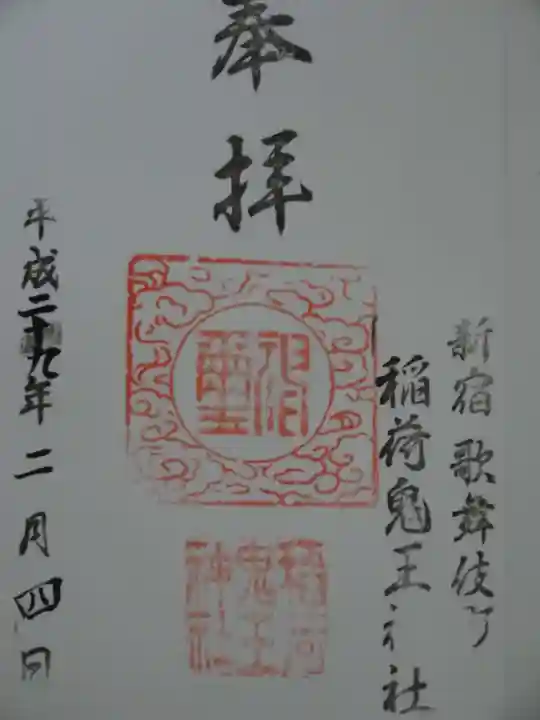 奉拝
新宿歌舞伎町
稲荷鬼王神社
平成二十九年二月四日
稲荷鬼王神社